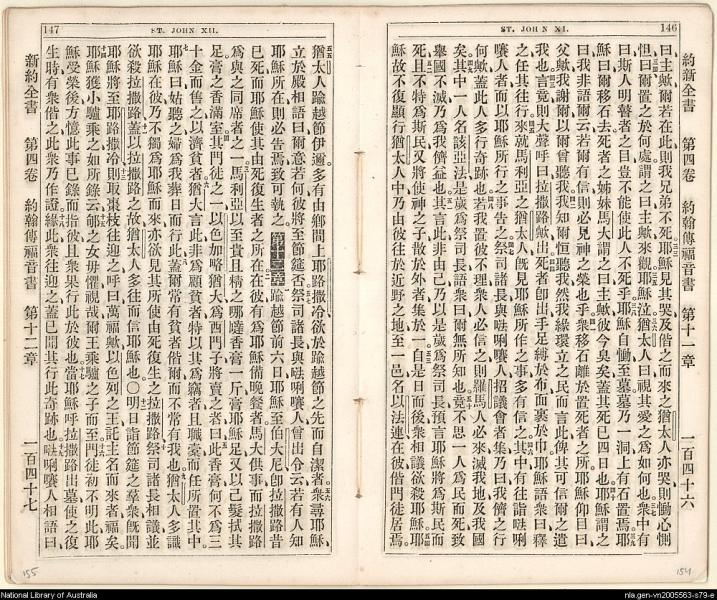 146
ST. JOHN XI.
約新全書 第四卷 約翰傳福音書 第十一章 一百四十六
曰主歟爾若在此則我兄弟不死耶穌見其哭及偕之而來之猶太人亦哭則慟心惻
怛曰爾置之於何處謂之曰主歟來觀耶穌泣猶太人曰視其愛之為如何也衆中有
曰斯人明瞽者之目豈不能使此人不死乎耶穌自慟至墓墓乃一洞上有石置焉耶
穌曰爾移石去死者之姊妹馬大謂之曰主歟彼今臭矣蓋其死已四日也耶穌謂之
曰我非語爾云若爾有信則必見神之榮也乎衆移石離於置死者之所耶穌仰目曰
父歟我謝爾以爾曾聽我我知爾恒聽我然我緣環立之民而言此俾其可信爾之遣
我也言竟則大聲呼曰拉撒路歟出死者卽出手足縛於布而裹於巾耶穌語衆曰釋
之任其往行來就馬利亞之猶太人旣見耶穌所作之事多有信之其中有往詣𠵽唎
嚷人者而以耶穌所行之事告之祭司諸長與𠵽唎嚷人招議會者集乃曰我儕之行
何歟蓋此人多行奇跡也若我置彼不理衆人必信之則羅馬人必來滅我地及我國
矣其中一人名該亞法是歲為祭司長語衆曰爾無所知也竟不思一人為民而死致
舉國不滅乃為我儕益也其言此非由己乃以是歲為祭司長預言耶穌將為斯民而
死且不特為斯民又將使神之子散於外者集於一自是日而後衆相議欲殺耶穌耶
穌故不復顯行猶太人中乃由彼往於近野之地至一邑名以法連在彼偕門徒居焉
147
ST. JOHN XII.
猶太人踰越節伊邇多有由鄉間上耶路撒冷欲於踰越節之先而自潔者衆尋耶穌
立於殿相語曰爾意若何彼將至節筵否祭司諸長與𠵽唎嚷人曾出令云若有人知
耶穌所在則必告焉致可執之 第十二章 踰越節前六日耶穌至伯大尼卽拉撒路昔
已死而耶穌使其由死復生者之所在在彼有為耶穌備晚餐者馬大供事而拉撒路
為與之同席者之一馬利亞以至貴且精之哪噠香膏一斤膏耶穌足又以己髮拭其
足膏之香滿室其門徒之一以色加略猶大為西門子將賣之者曰此香膏何不為三
十金而售之以濟貧者猶大言此非為顧貧者特以其為竊者且職橐而任所置其中
耶穌曰姑聽之婦為我葬日而行此蓋爾常有貧者偕爾而不常有我也猶太人多識
耶穌在彼乃不獨為耶穌而來亦欲見其所使由死復生之拉撒路祭司諸長相議並
欲殺拉撒路蓋以拉撒路之故猶太人多往而信耶穌也〇明日詣節筵之羣衆旣聞
耶穌將至耶路撒冷則取棗枝往迎之呼曰萬福歟以色列之王託主名而來者福矣
耶穌獲小驢乘之如所錄云郇之女毋懼視哉爾王乘驢之子而至門徒初不明此耶
穌受榮後方憶此事已錄而指彼且衆果行此於彼也當耶穌呼拉撒路出墓使之復
生時有衆偕之此衆乃作證緣此衆往迎之蓋已聞其行此奇跡也𠵽唎嚷人相語曰
新約全書 第四卷 約翰傳福音書 第十二章 一百四十七
155
154
National Library of Australia
nla.gen-vn2005563-s79-e